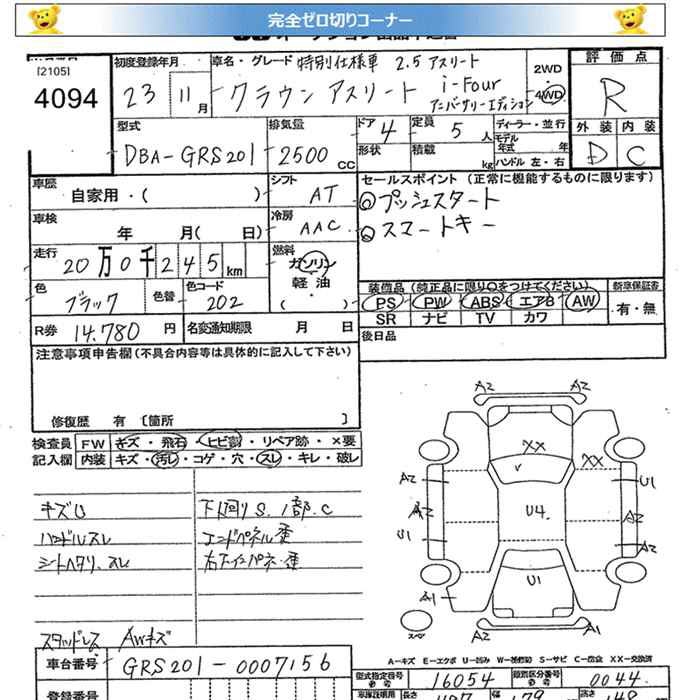 完全ゼロ切りコーナー
[2105]
4094
初度登録年月
23 11月
車名・グレード 特別仕様車 2.5 アスリート
クラウンアスリート i-Four
アニバーサリーエディション
2WD
4WD
評価点
R
外装 内装
D C
型式
DBA-GRS201
排気量
2500 CC
ドア 4
定員 5 人
ディーラー・並行
モデル年式 年
形状
積載 kg
ハンドル 左・右
車歴
自家用・( )
シフト AT
セールスポイント (正常に機能するものに限ります)
◎プッシュスタート
◎スマートキー
車検
年 月( 日)
冷房 AAC
走行
20万0千245km
燃料
ガソリン
軽油
・( )
色
ブラック
色替
色コード
202
装備品 (純正品に限り○をつけてください)
PS PW ABS エアB AW
SR ナビ TV カワ
新車保証書
有・無
R券 14.780 円
名変通知期限 月 日
後日品
注意事項申告欄(不具合内容等は具体的に記入して下さい)
修復歴 有 〔箇所 〕
検査員
記入欄
FW キズ・飛石・ヒビ割・リペア跡・×要
内装 キズ・汚レ・コゲ・穴・スレ・キレ・破レ
キズU
ハンドルスレ
シートヘタリ、スレ
下回りS.1部.C
エンドパネル歪
スタッドレス AWキズ
A2 A2
XX
XX
A2
U1
A2
A2
U4
U1
A2
U1
A1
A2
A1
スペア
A-キズ E-エクボ U-凹み W-補修跡 S-サビ C-腐食 XX-交換済
車台番号 GRS201-0007156
型式指定番号 16054
類別区分番号 0044
登録番号